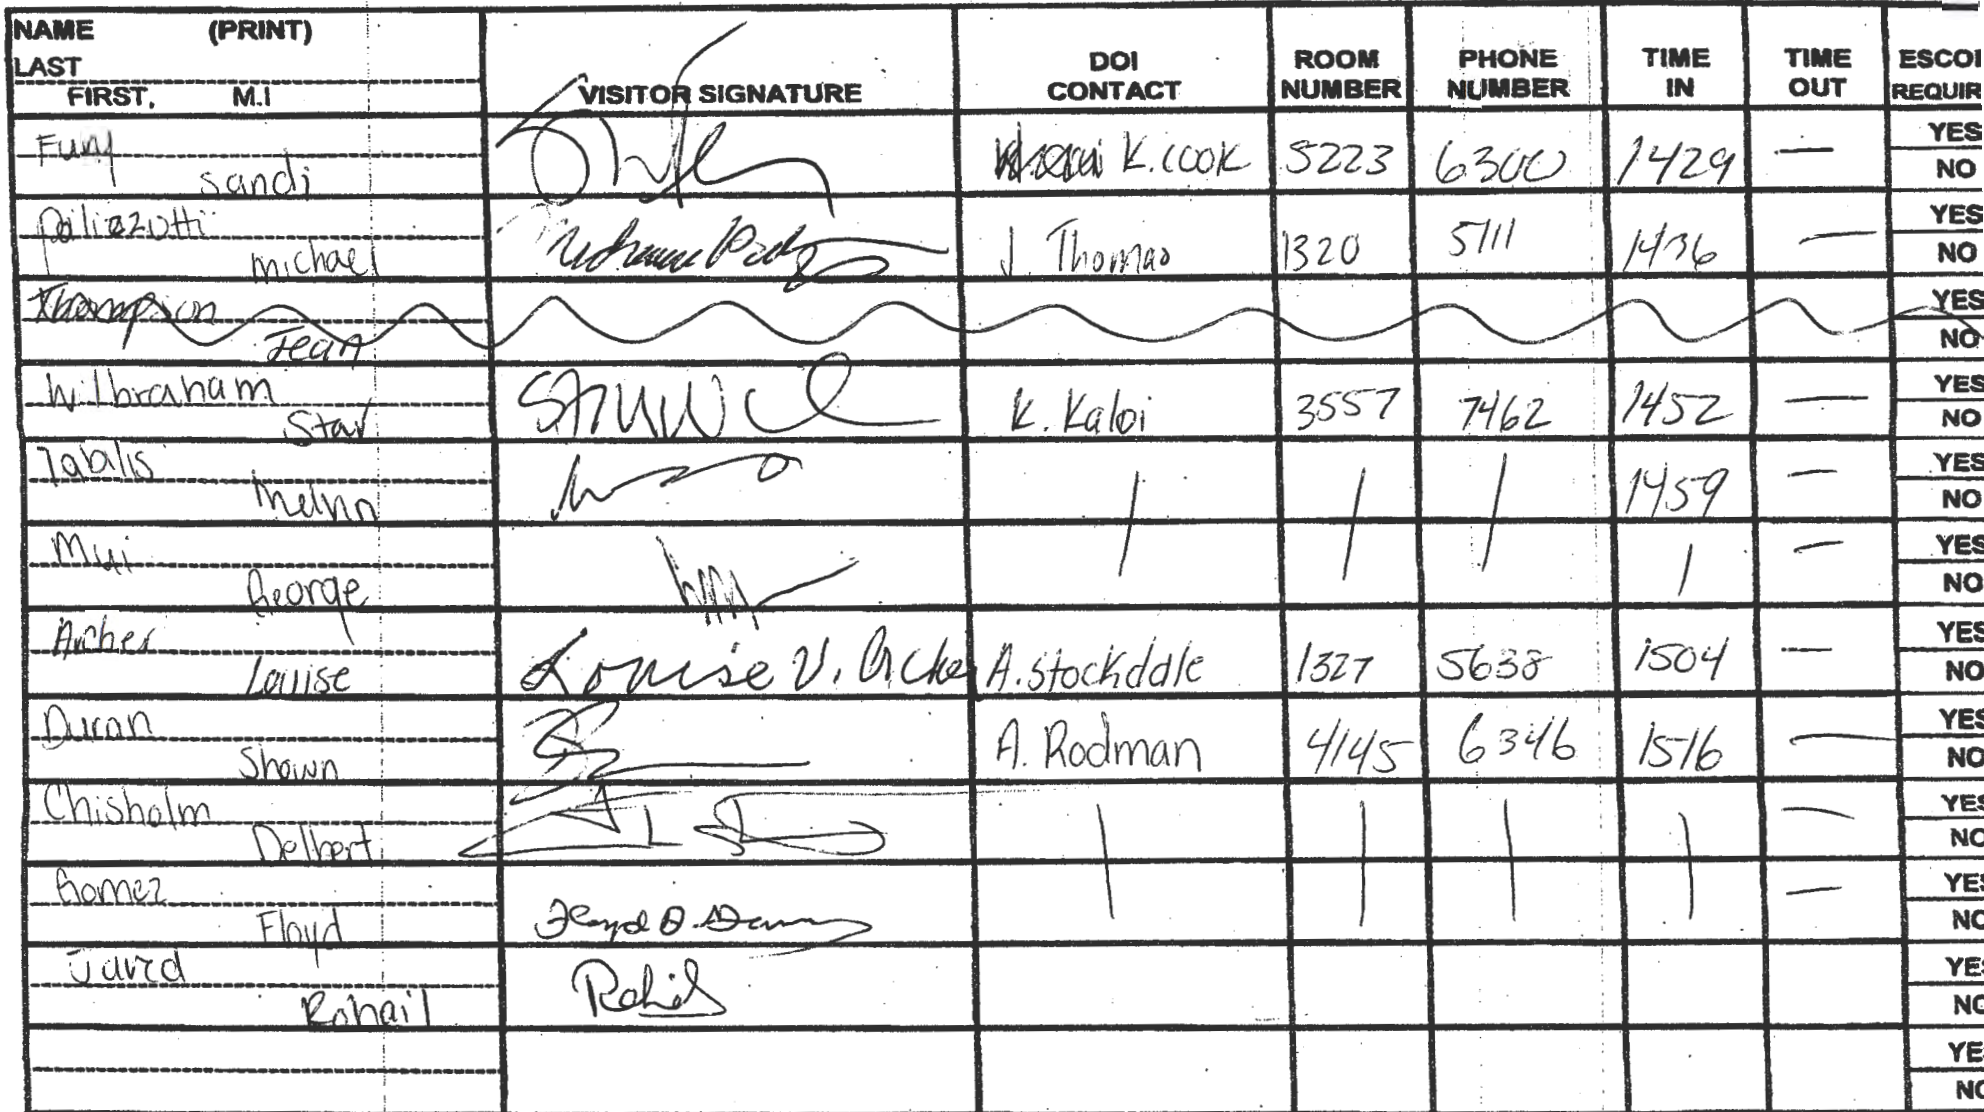 NAME (PRINT)
LAST
FIRST, M.I
VISITOR SIGNATURE
DOI CONTACT
ROOM NUMBER
PHONE NUMBER
TIME IN
TIME OUT
ESCOI
REQUIR
Fury
Sandi
K. COOK 5223 6300 1429 —
YES
NO
Michael
J. Thomas 1320 5111 1436 —
YES
NO
Thompson
Jean
YES
NO
Wilbraham
Star
K. Kaloi 3557 7462 1452 —
YES
NO
Tabalis
Melvin
| | | 1459 —
YES
NO
Mui
George
| —
YES
NO
Archer
Louise
Louise V. Archer A. Stockddle 1327 5638 1504 —
YES
NO
Duran
Shawn
A. Rodman 4145 6346 1516 —
YES
NO
Chisholm
Delbert
| | | | —
YES
NO
Gomez
Floyd
—
YES
NO
Javed
Rohail
Rohail
YES
NO
YE
NO